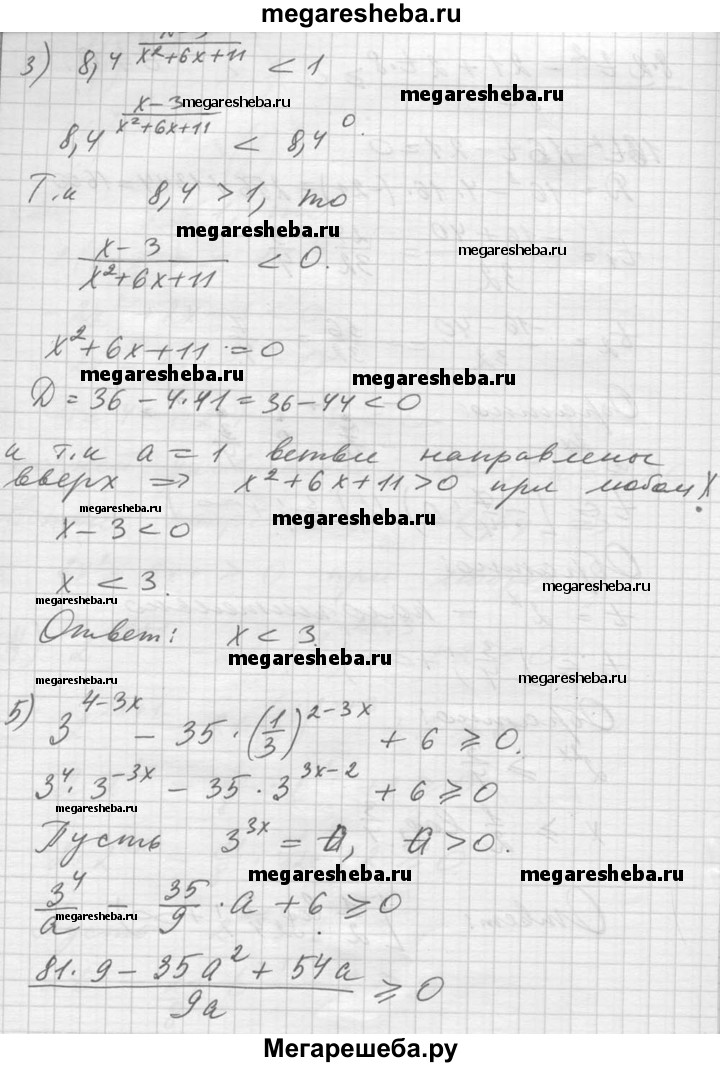 megaresheba.ru
3) 8,4^((x-3)/(x²+6x+11)) < 1
megaresheba.ru
megaresheba.ru
8,4^((x-3)/(x²+6x+11)) < 8,4^0.
Т.к 8,4 > 1, то
megaresheba.ru
(x-3)/(x²+6x+11) < 0.
megaresheba.ru
x²+6x+11 = 0
megaresheba.ru
megaresheba.ru
D = 36 - 4·11 = 36 - 44 < 0
и т.к a = 1 ветви направлены
вверх => x²+6x+11 > 0 при любом x.
megaresheba.ru
megaresheba.ru
x - 3 < 0
x < 3.
megaresheba.ru
megaresheba.ru
Ответ: x < 3.
megaresheba.ru
megaresheba.ru
5) 3^(4-3x) - 35·(1/3)^(2-3x) + 6 ≥ 0.
3^4·3^(-3x) - 35·3^(3x-2) + 6 ≥ 0
megaresheba.ru
Пусть 3^(3x) = a, a > 0.
megaresheba.ru
megaresheba.ru
3^4/a - 35/9·a + 6 ≥ 0
megaresheba.ru
(81·9 - 35a² + 54a)/(9a) ≥ 0
Мегарешеба.ру